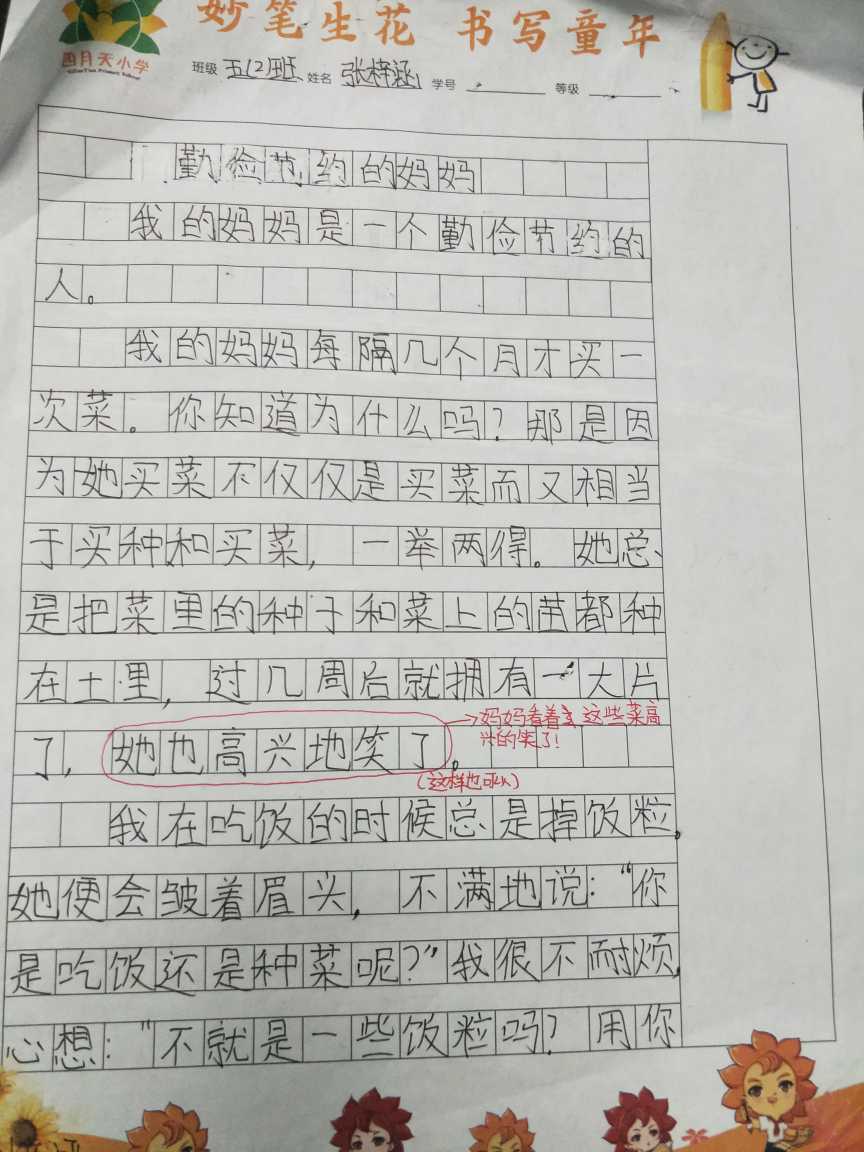 妙笔生花 书写童年
四月天小学
班级 五(2)班 姓名 张梓涵 学号 等级
勤俭节约的妈妈
我的妈妈是一个勤俭节约的
人。
我的妈妈每隔几个月才买一
次菜。你知道为什么吗？那是因
为她买菜不仅仅是买菜而又相当
于买种和买菜，一举两得。她总
是把菜里的种子和菜上的苗都种
在土里，过几周后就拥有一大片
了，她也高兴地笑了。
妈妈看着 这些菜高
兴的笑了！
(这样也可以)
我在吃饭的时候总是掉饭粒，
她便会皱着眉头，不满地说：“你
是吃饭还是种菜呢？”我很不耐烦，
心想：“不就是一些饭粒吗？用你